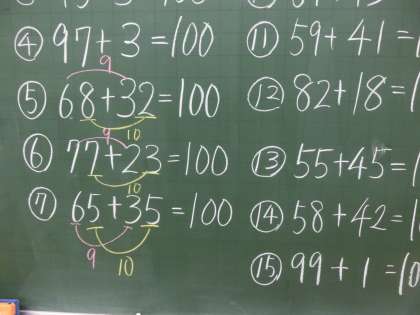 ④ 97+3=100
9
⑤ 68+32=100
9 10
⑥ 77+23=100
10
⑦ 65+35=100
9
10
⑪ 59+41=
⑫ 82+18=1
⑬ 55+45=
⑭ 58+42=
⑮ 99+1=10